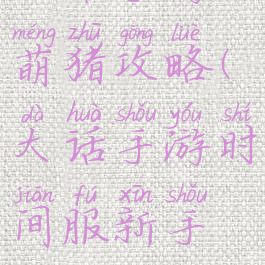 méng zhū gōng lüè
萌猪攻略(
dà huà shǒu yóu shí
大话手游时
jiān fú xīn shǒu
间服新手